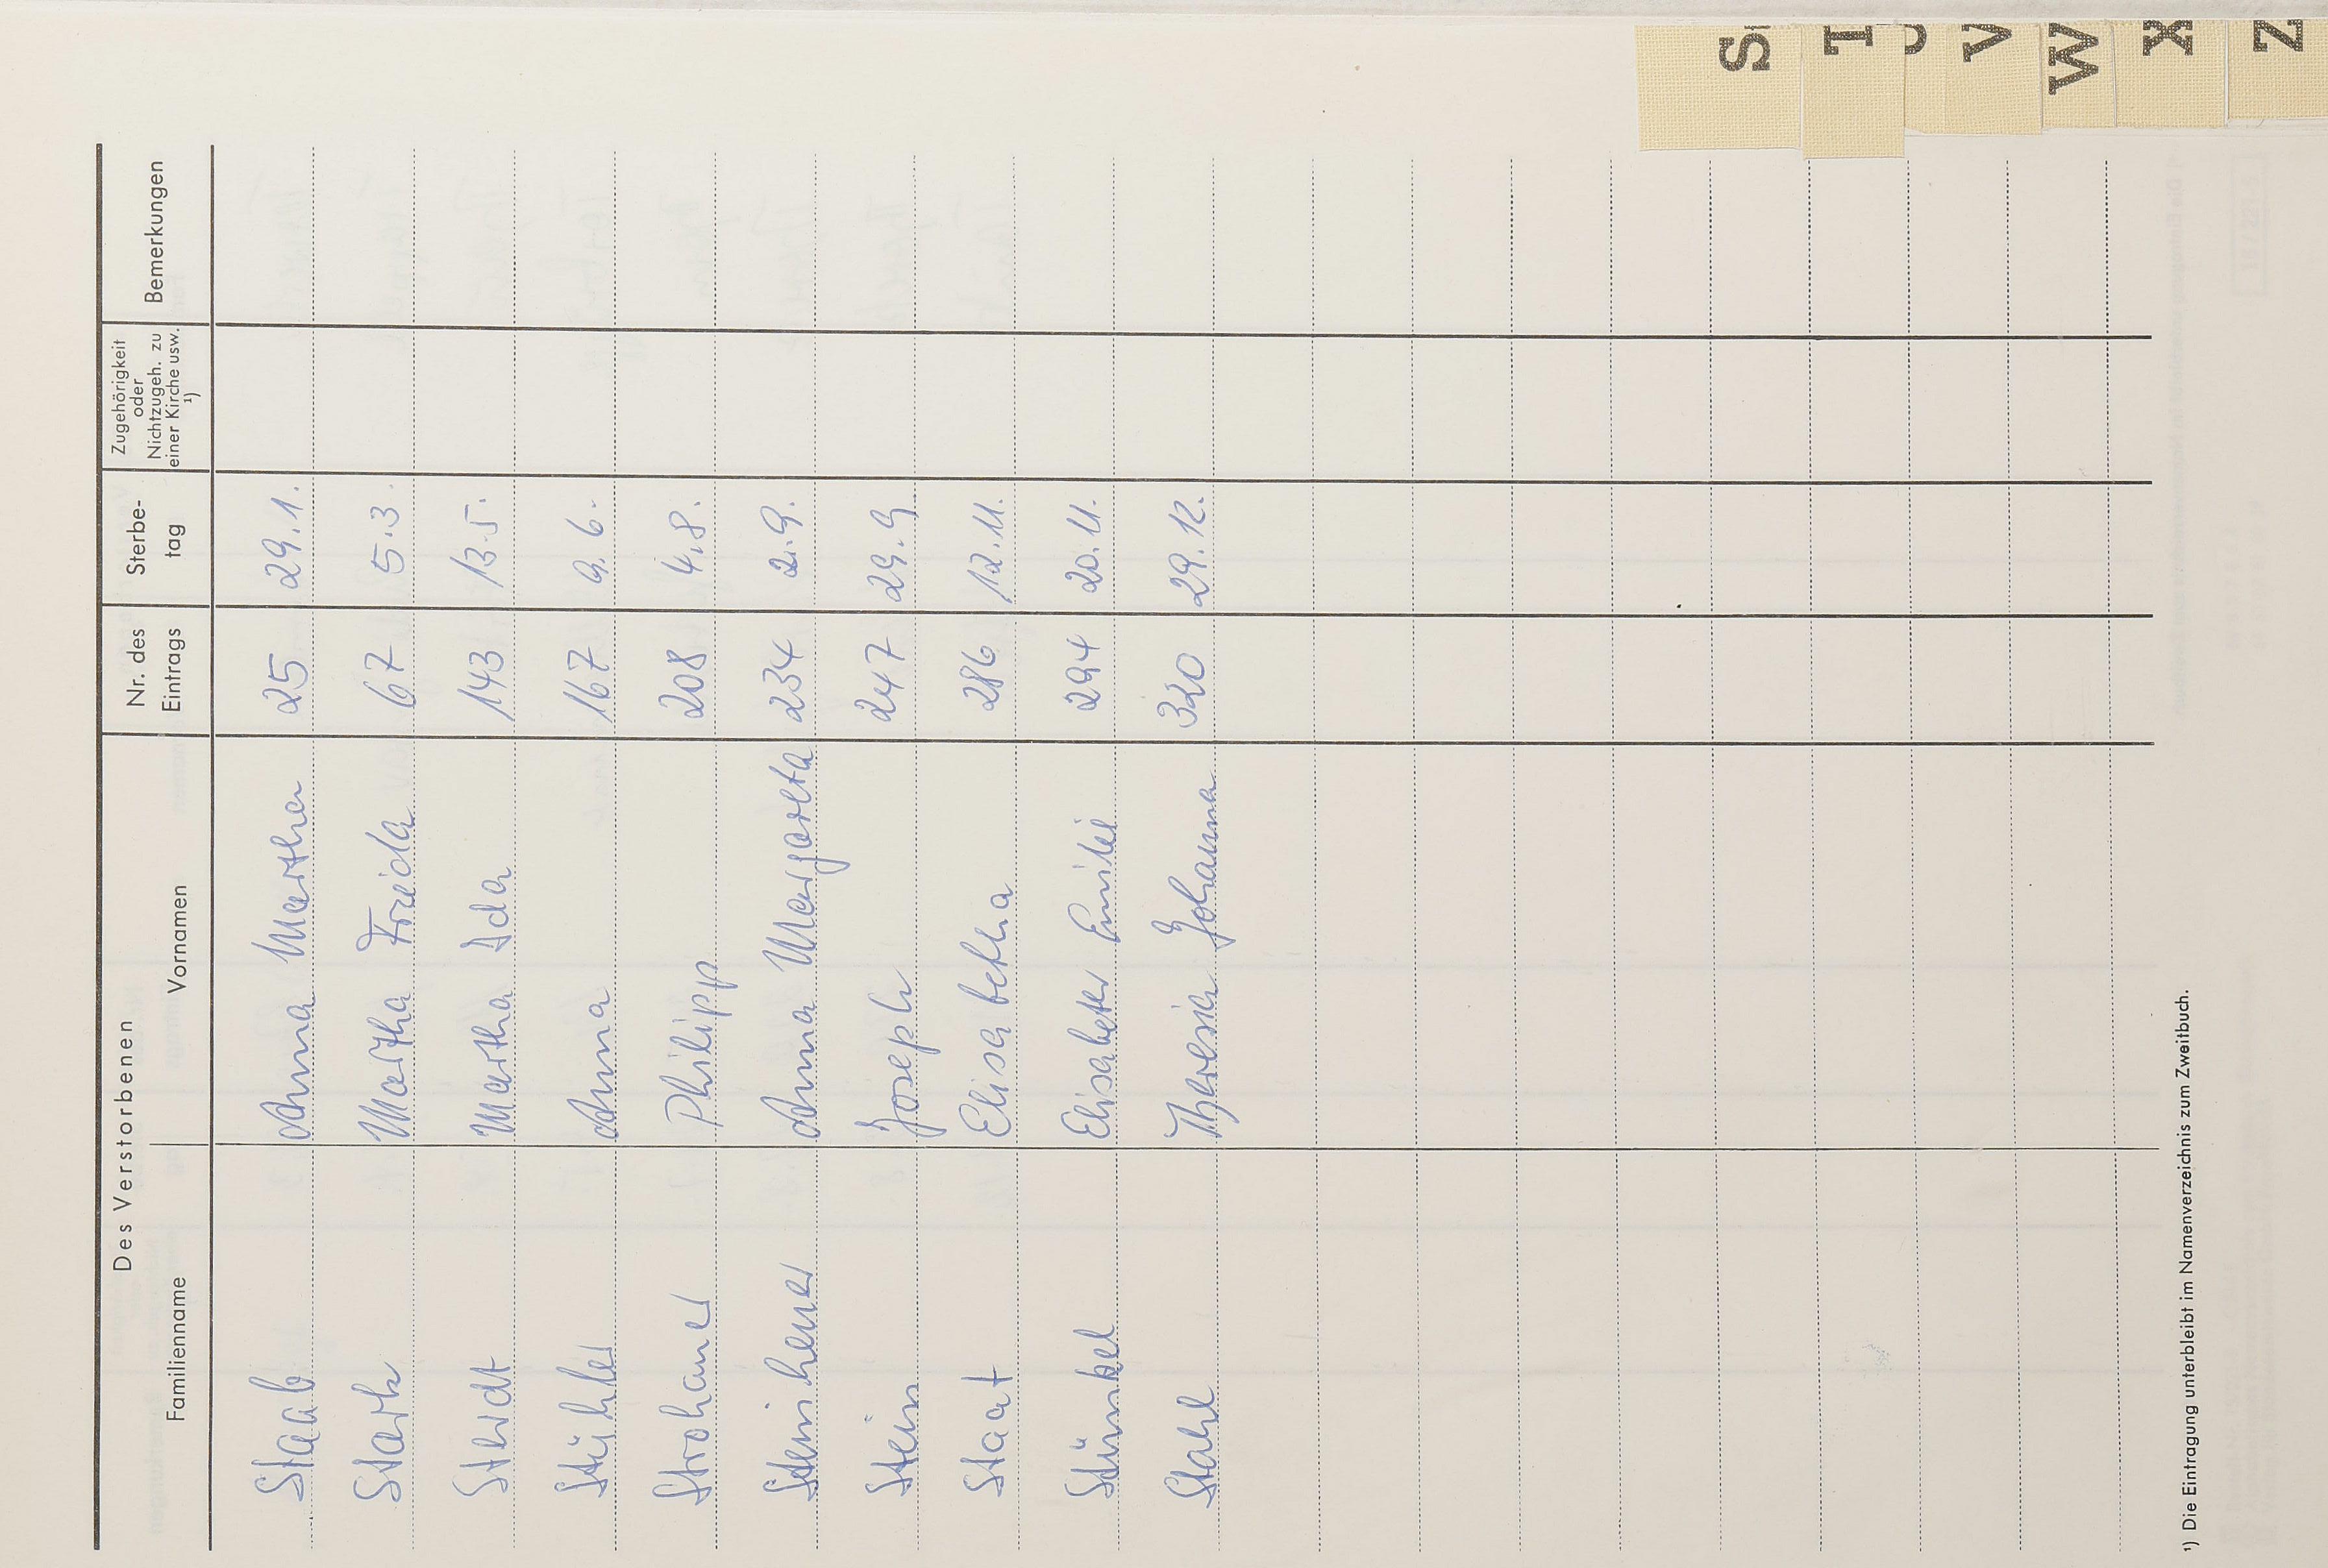 Des Verstorbenen
Familienname Vornamen Nr. des Eintrags Sterbe-tag Zugehörigkeit oder Nichtzugeh. zu einer Kirche usw. ¹) Bemerkungen
Staab Anna Martha 25 29.1.
Stark Martha Frieda 67 5.3.
Sterdt Martha Ida 143 13.5.
Stühler Anna 167 9.6.
Strohauer Philipp 208 4.8.
Steinheuer Anna Margareta 234 2.9.
Stein Joseph 247 29.9.
Staat Elisabetha 286 12.11.
Stünkel Elisabeth Emilie 294 20.11.
Stahl Theresia Johanna 320 29.12.
¹) Die Eintragung unterbleibt im Namenverzeichnis zum Zweitbuch.
S
T
V
W
X
Z